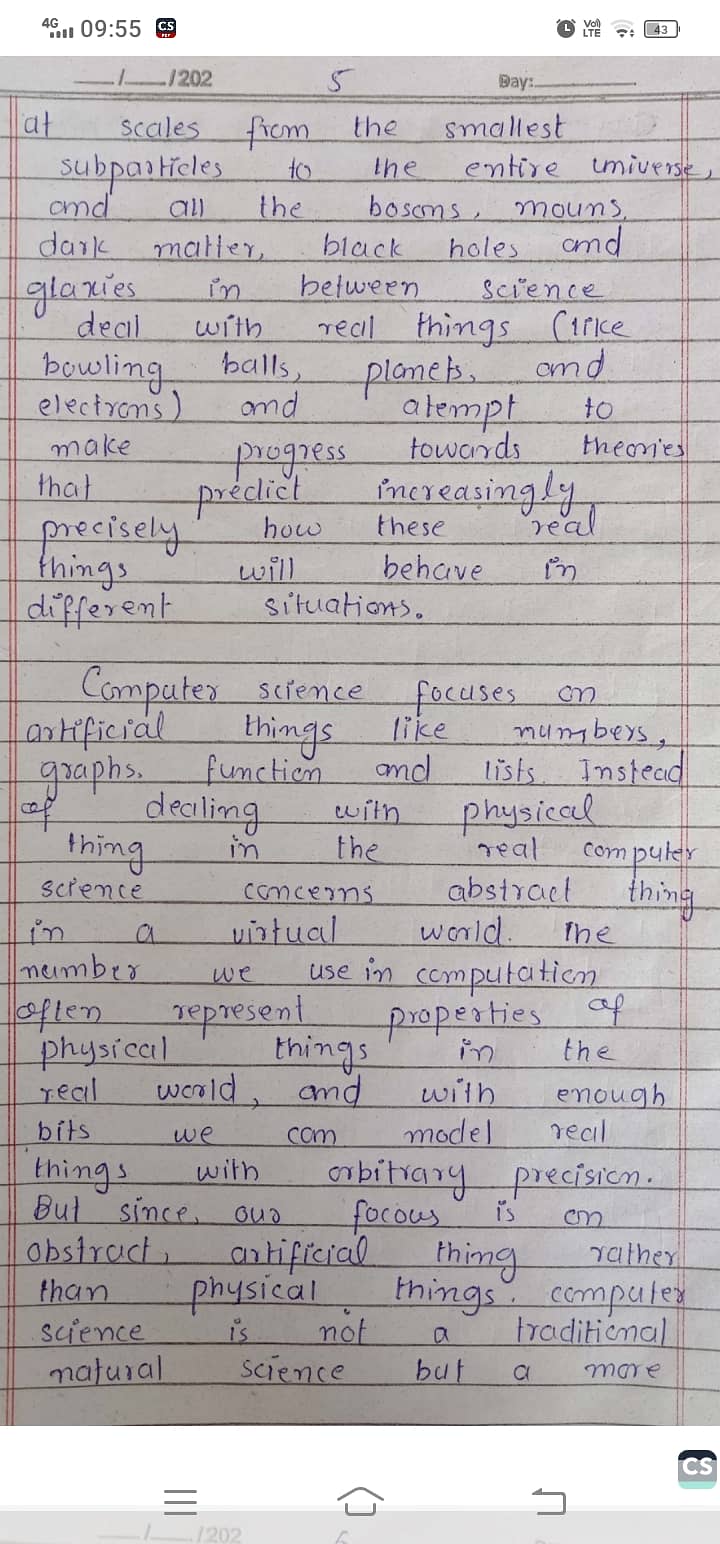 4G 09:55 CS PDF Vo) LTE 43
__/__/202 5 Day:
at scales from the smallest
subparticles to the entire universe,
and all the bosons, mouns,
dark matter, black holes and
glaxies in between science
deal with real things (like
bowling balls, planets, and
electrons) and atempt to
make progress towards theories
that predict increasingly
precisely how these real
things will behave in
different situations.
Computer science focuses on
artificial things like numbers,
graphs, function and lists. Instead
of dealing with physical
thing in the real computer
science concerns abstract thing
in a virtual world. The
number we use in computation
often represent properties of
physical things in the
real world, and with enough
bits we can model real
things with orbitrary precision.
But since, our focous is on
obstract, artificial thing rather
than physical things. computer
science is not a traditional
natural science but a more
CS
__/__/202 6